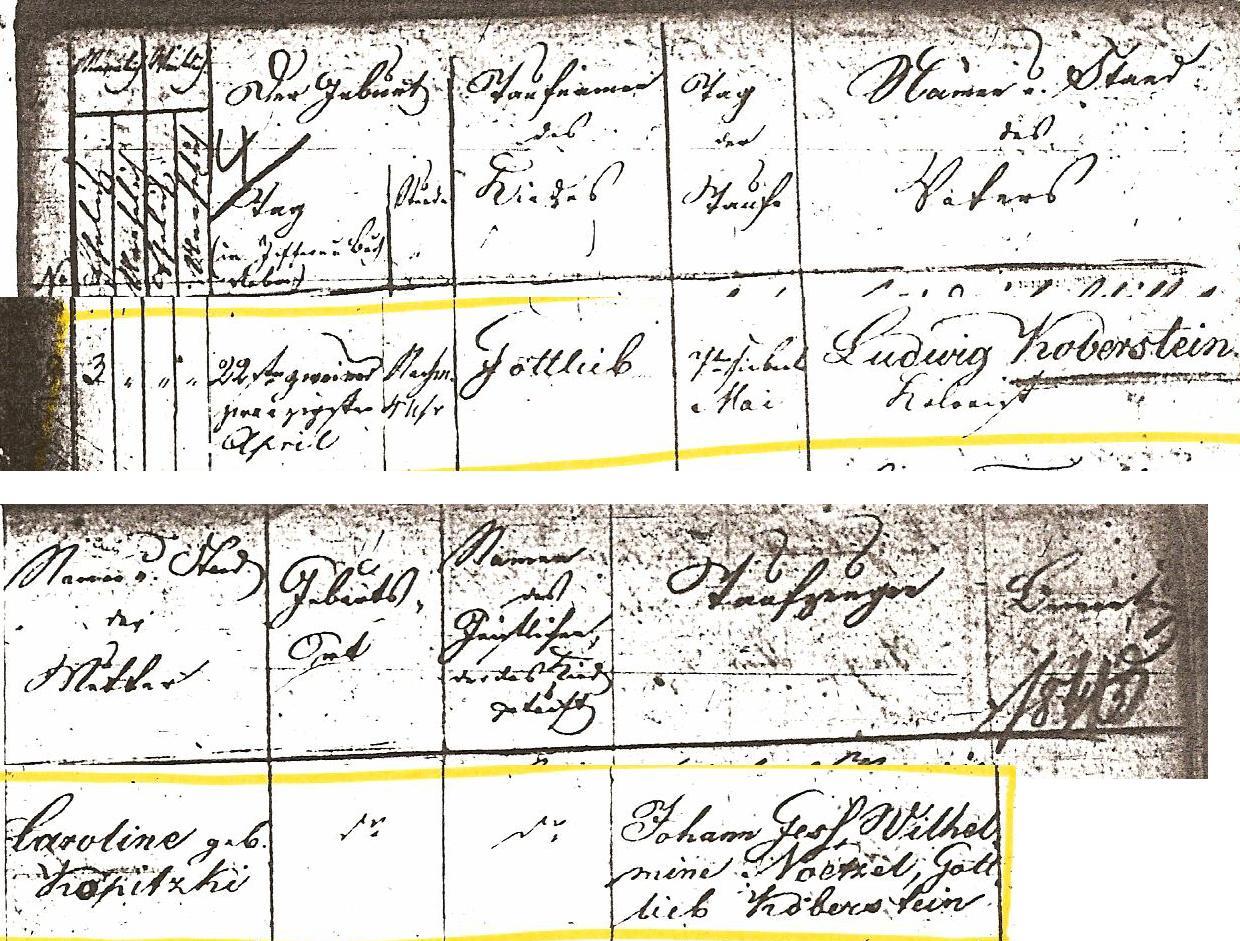 Männlich Weiblich
Der Geburt
Taufname
Tag
Namen u. Stand
des
der
des
Kindes
Taufe
Vaters
Ehelich Unehelich Ehelich Unehelich
Tag
Stunde
(in Ziffern u. Buch
staben)
No
3 " " "
22ten zwei und
zwanzigsten
April
Nachm.
Uhr
Gottlieb
7ten sieben
Mai
Ludwig Koberstein
Kolonist
Namen u. Stand
der
Mutter
Geburts-
Ort
Namen
des
Geistlichen,
der das Kind
getauft
Taufzeugen
Caroline geb.
Kopitzki
do
do
Johann Wilhel
mine Noetzel, Gott
lieb Koberstein